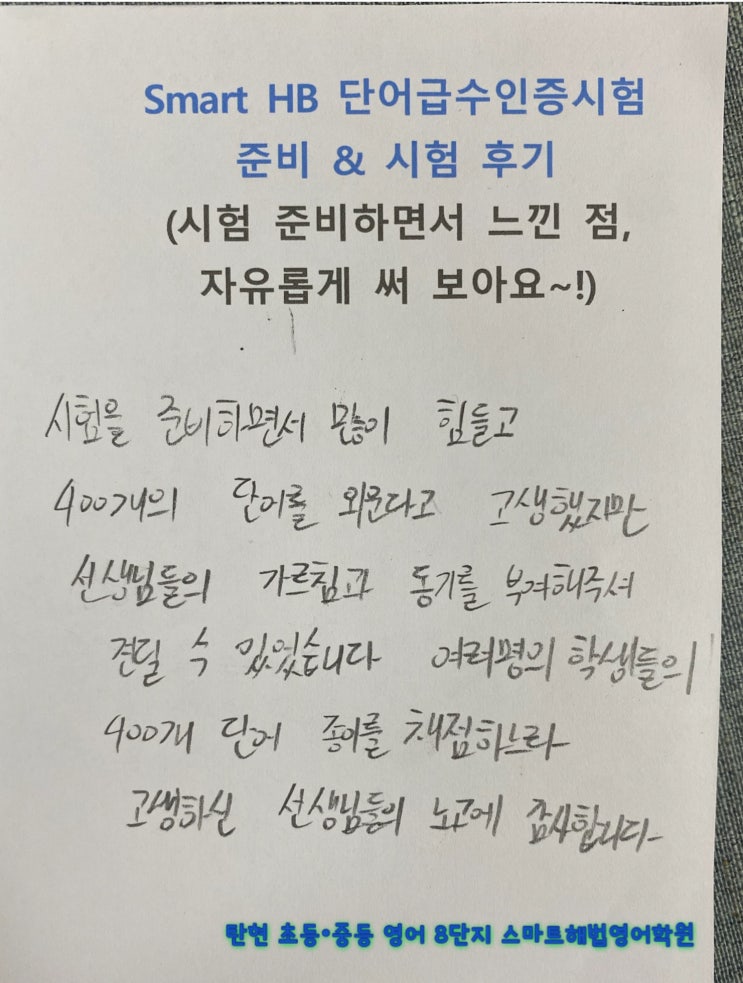 Smart HB 단어급수인증시험
준비 & 시험 후기
(시험 준비하면서 느낀 점,
자유롭게 써 보아요~!)
시험을 준비하면서 많이 힘들고
400개의 단어를 외운다고 고생했지만
선생님들의 가르침과 동기를 부여해주셔
견딜 수 있었습니다 여러명의 학생들의
400개 단어 종이를 채점하느라
고생하신 선생님들의 노고에 감사합니다
탄현 초등•중등 영어 8단지 스마트해법영어학원